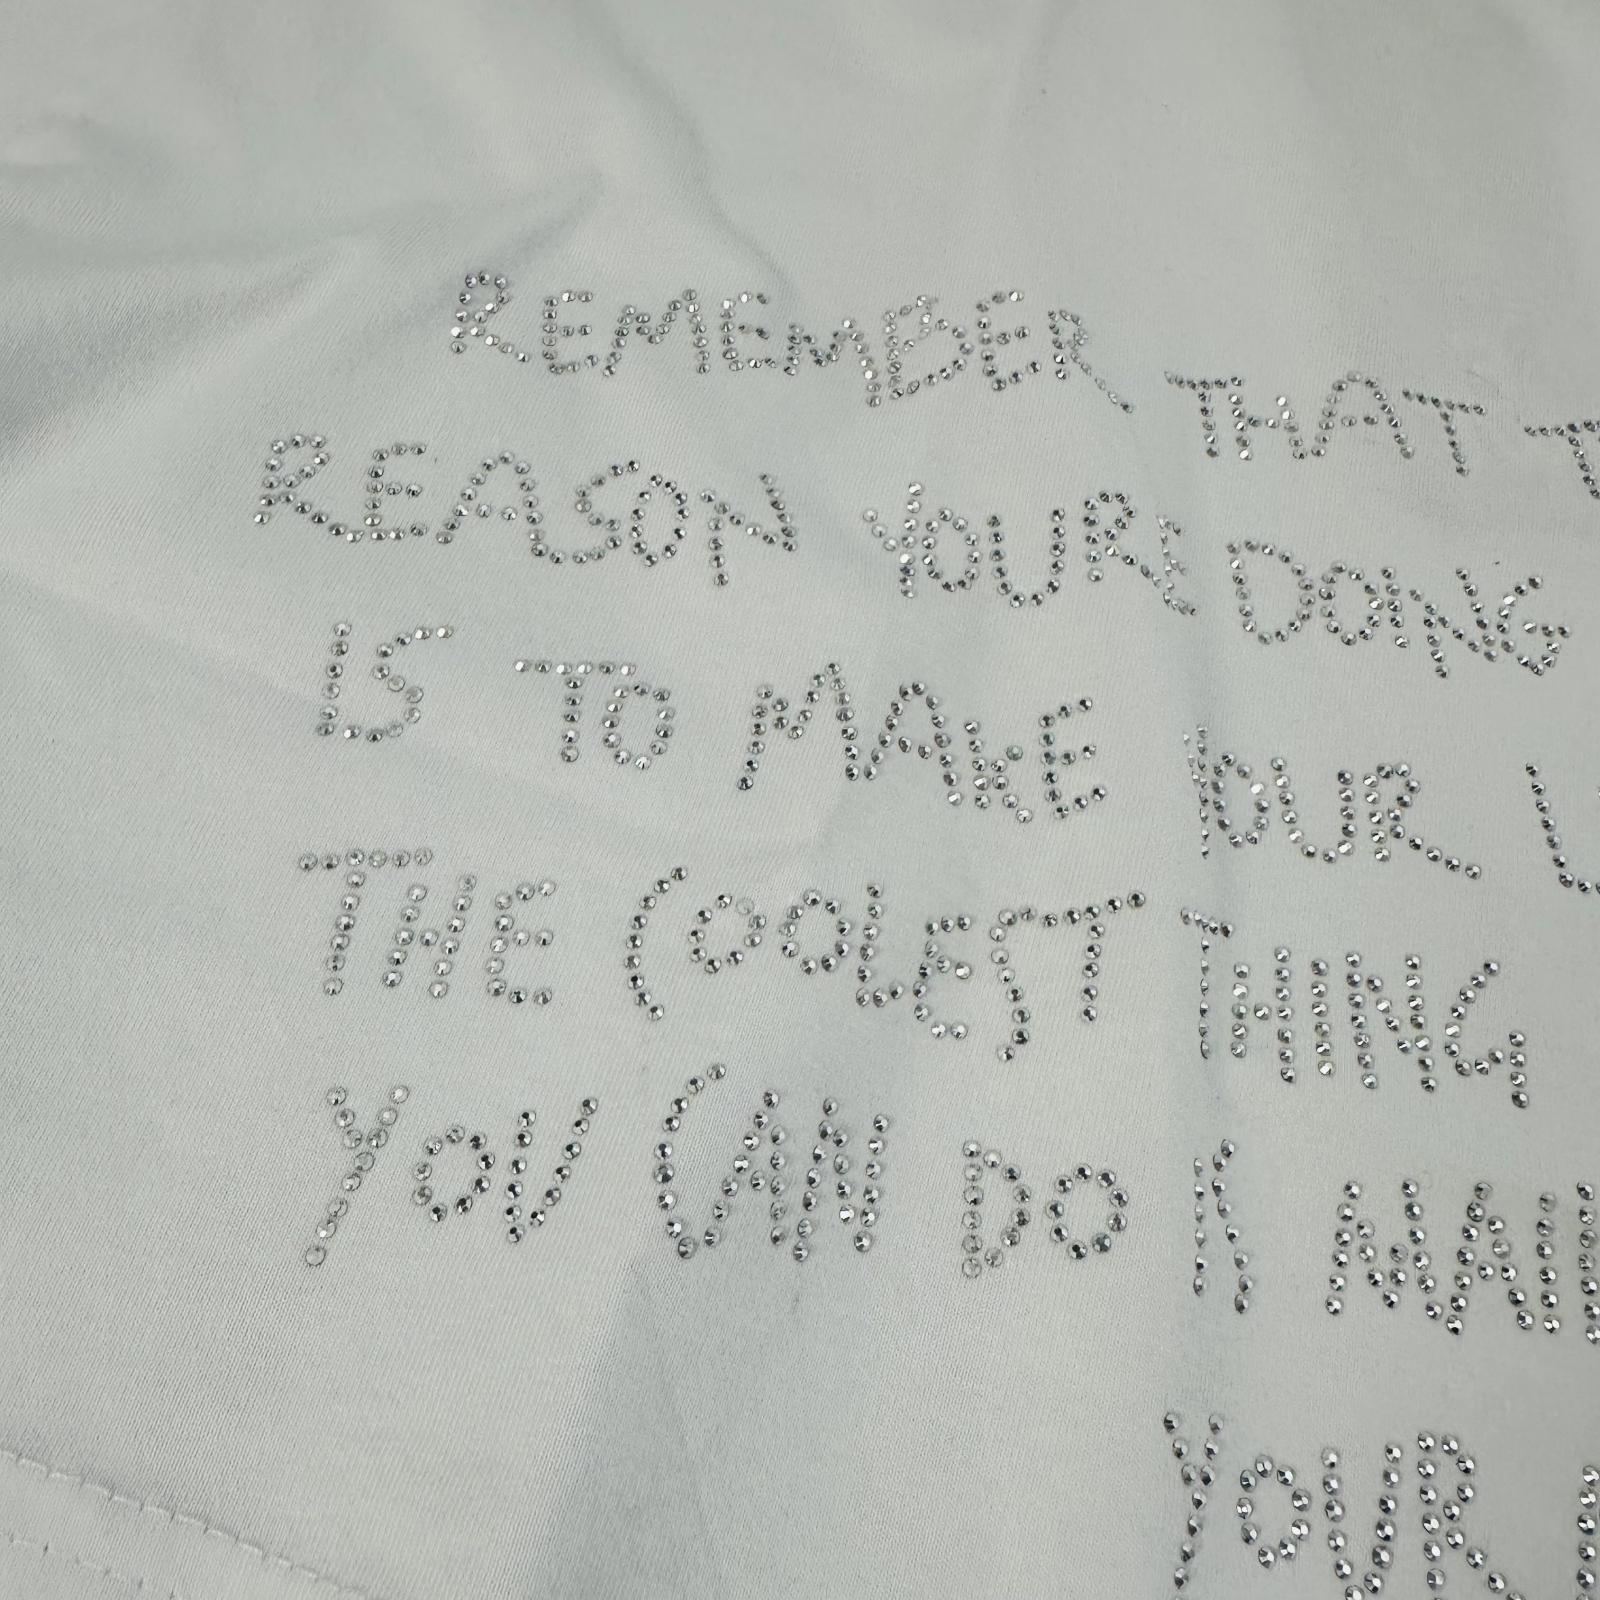 REMEMBER THAT T
REASON YOURE DOING
IS TO MAKE YOUR L
THE COOLEST THING
YOU CAN DO
YOUR